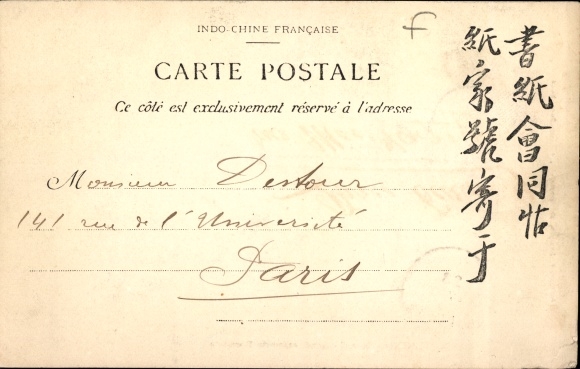 INDO-CHINE FRANÇAISE
CARTE POSTALE
Ce côté est exclusivement réservé à l'adresse
Monsieur Destour
141 rue de l'Université
Paris
書紙會同帖
紙家號寄于